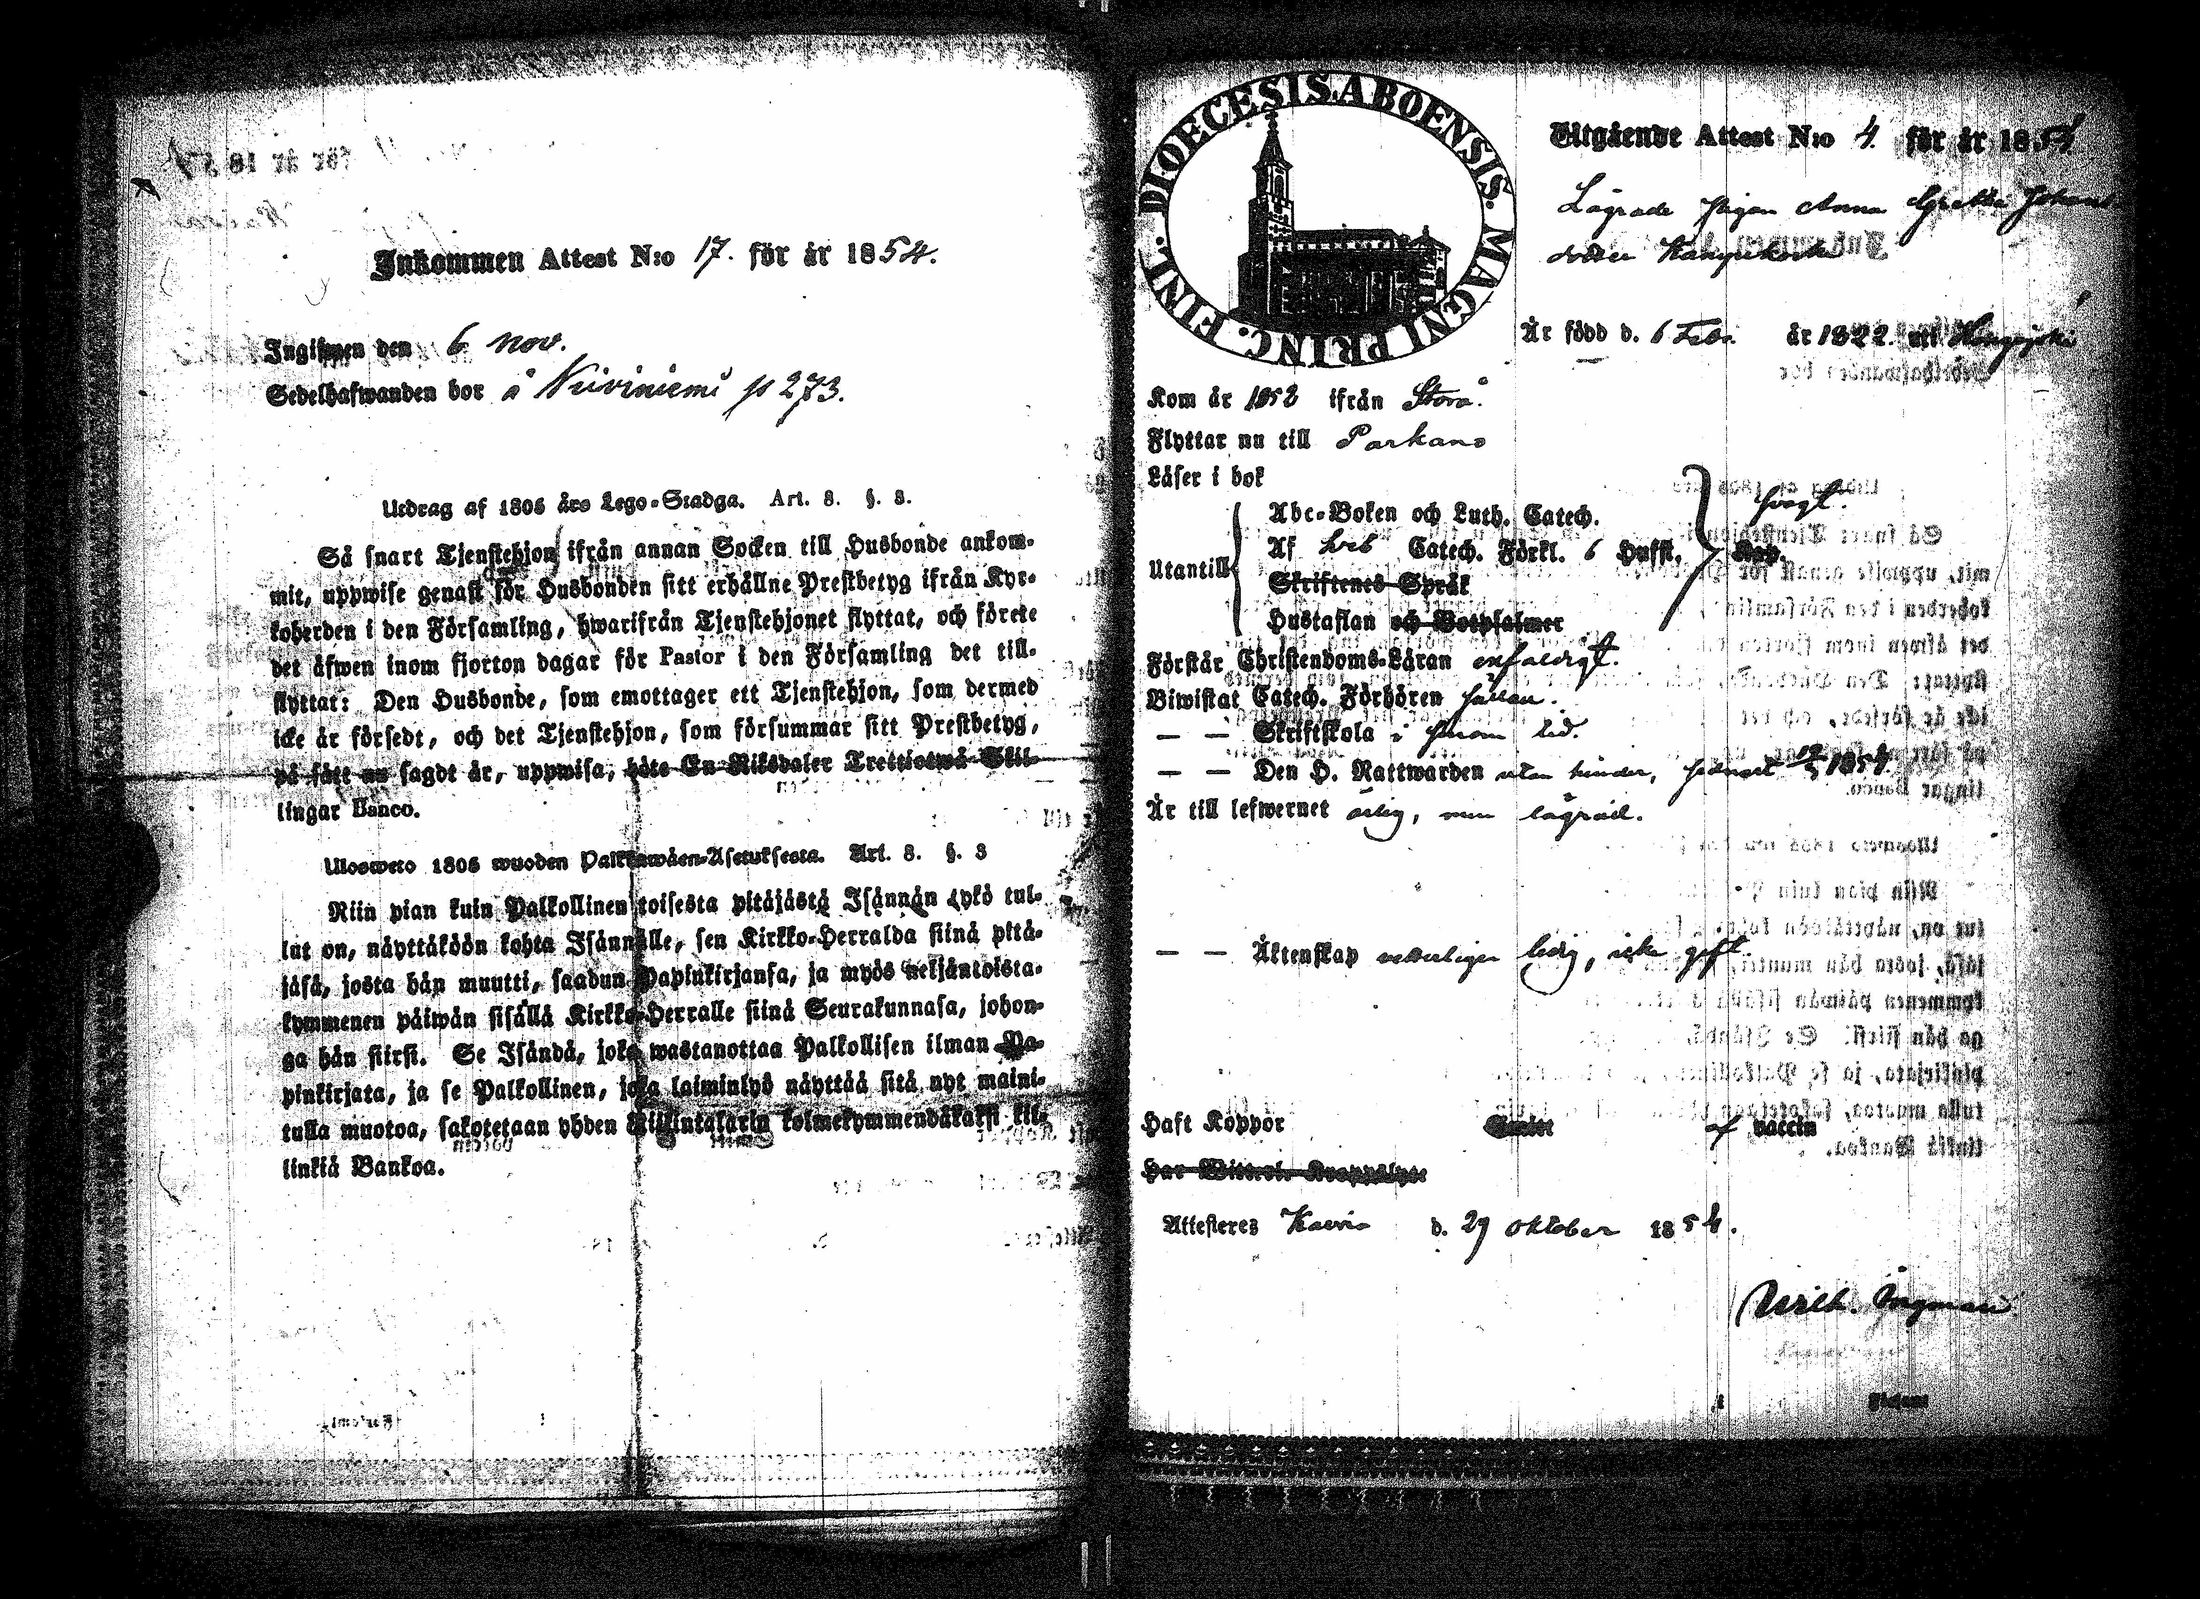 Inkommen Attest N:o 17. för år 1854.
Ingifwen den 6 Nov.
Sedelhafwanden bor å Niiviniemi p 273.
Utdrag af 1805 års Lego-Stadga. Art. 8. §. 3.
Så snart Tjenstehjon ifrån annan Socken till Husbonde ankom-
mit, uppwise genast för Husbonden sitt erhållne Prestbetyg ifrån Kyr-
koherden i den Församling, hwarifrån Tjenstehjonet flyttat, och förete
det äfwen inom fjorton dagar för Pastor i den Församling det till-
flyttat: Den Husbonde, som emottager ett Tjenstehjon, som dermed
icke är försedt, och det Tjenstehjon, som försummar sitt Prestbetyg,
på sätt nu sagdt är, uppwisa, böte En Riksdaler Trettiotwå Skil-
lingar Banco.
Ulosweto 1805 wuoden Palkkawäen-Asetuksesta. Art. 8. §. 3
Niin pian kuin Palkollinen toisesta pitäjästä Isännän tykö tul-
lut on, näyttäköön kohta Isännälle, sen Kirkko-Herralda siinä pitä-
jäsä, josta hän muutti, saadun Papinkirjansa, ja myös neljäntoista-
kymmenen päiwän sisällä Kirkko-Herralle siinä Seurakunnasa, johon-
ga hän siirsi. Se Isändä, joka wastanottaa Palkollisen ilman Pa-
pinkirjata, ja se Palkollinen, joka laiminlyö näyttää sitä nyt maini-
tulla muotoa, sakotetaan yhden Riikintalarin kolmekymmendäkaksi kil-
linkiä Bankoa.
DIOECESIS ABOENSIS. MAGNI PRINC. FINL.
Utgående Attest N:o 4. för år 1854
Lägrade pigan Anna Greta Johans
dotter
Är född d. 6 Febr. år 1822. uti
Kom år 1852 ifrån Storå.
Flyttar nu till Parkano
Läser i bok
Abc-Boken och Luth. Catech.
Utantill Af Catech. Förkl. 6 Hufst.
Skriftenes Språk
Hustaflan och Botpsalmer
Förstår Christendoms-Läran enfaldigt.
Biwistat Catech. Förhören sällan.
— — Skriftskola i sinom tid.
— — Den H. Nattwarden utan hinder, senast 1854.
Är till lefwernet ärlig, men lägrad.
— — Äktenskap ledig, icke gift.
Haft Koppor Smitt af vaccin
Har Witterl. Kroppslyte
Attesteres Karvia d. 29 oktober 1854.
Ingman